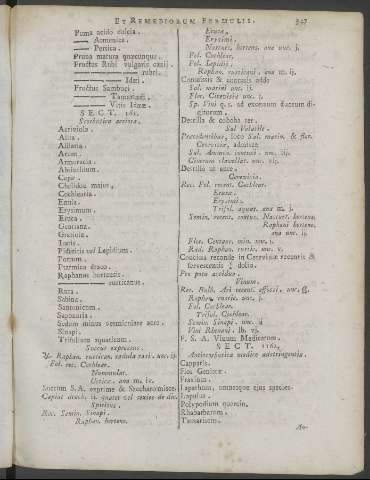 ET REMEDIORUM FORMULIS. 347
Poma acido dulcia.
—— Armenica.
—— Persica.
Pruna matura quæcunque.
Fructus Rubi vulgaris caesii.
—— rubri.
—— Idæi.
Fructus Sambuci.
—— Tamarindi.
—— Vitis Idææ.
SECT. 161.
Scorbutica acriora.
Acriviola.
Allia.
Alliaria.
Arum.
Armoracia.
Absinthium.
Cepa.
Chelidon. majus.
Cochlearia.
Enula.
Erysimum.
Eruca.
Gentiana.
Gratiola.
Iberis.
Piperitis vel Lepidium.
Porrum.
Ptarmica draco.
Raphanus hortensis.
—— rusticanus.
Ruta.
Sabina.
Santonicum.
Saponaria.
Sedum minus vermiculare acre.
Sinapi.
Trifolium aquaticum.
Succus expressus.
℞. Raphan. rustican. radula rasi. unc. ij.
Fol. rec. Cochlear.
Nummular.
Urticæ. ana m. iv.
Succum S. A. exprime &
Capiat drach. ij. quater vel sexies de die.
Spiritus.
Rec. Semin. Sinapi.
Raphan. hortens.
Erucæ.
Erysimi.
Nasturt. hortens. ana unc. j.
Fol. Cochlear.
Fol. Lepidii.
Raphan. rusticani. ana m. ij.
Contusis & concisis adde
Sal. marini unc. ij.
Flor. Cerevisiæ unc. j.
Sp. Vini q. s. ad exonum
gitorum.
Destilla & cohoba ter.
Sal Volatile.
Præcedentibus, loco Sal. marin. & flor.
Cerevisiæ, admisce
Sal. Ammon. contusi. unc. iij.
Cinerum clavellat. unc. xij.
Destilla ut ante.
Cerevisia.
Rec. Fol. recent. Cochlear.
Erucæ.
Erysimi.
Trifol. aquat. ana m. j.
Semin. recent. contus. Nasturt. hortens.
Raphani hortens.
ana unc. ij.
Flor. Centaur. min. unc. j.
Rad. Raphan. rustic. unc. v.
Concisa reconde in Cerevisiæ recentis &
fervescentis ½ dolio.
Pro potu assiduo.
Vinum.
Rec. Bulb. Ari recent. effossi. unc. ß.
Raphan. rustic. unc. j.
Fol. Cochlear.
Trifol.
Semin. Sinapi. unc. ij
Vini Rhenani. lb. vj.
F. S. A. Vinum Medicatum.
SECT. 1162.
Antiscorbutica modice adstringentia.
Capparis.
Flos Genistæ.
Fraxinus.
Lapathum, omnesque ejus species.
Lupulus.
Polypodium quercin.
Rhabarbarum.
Tamariscus.
An-